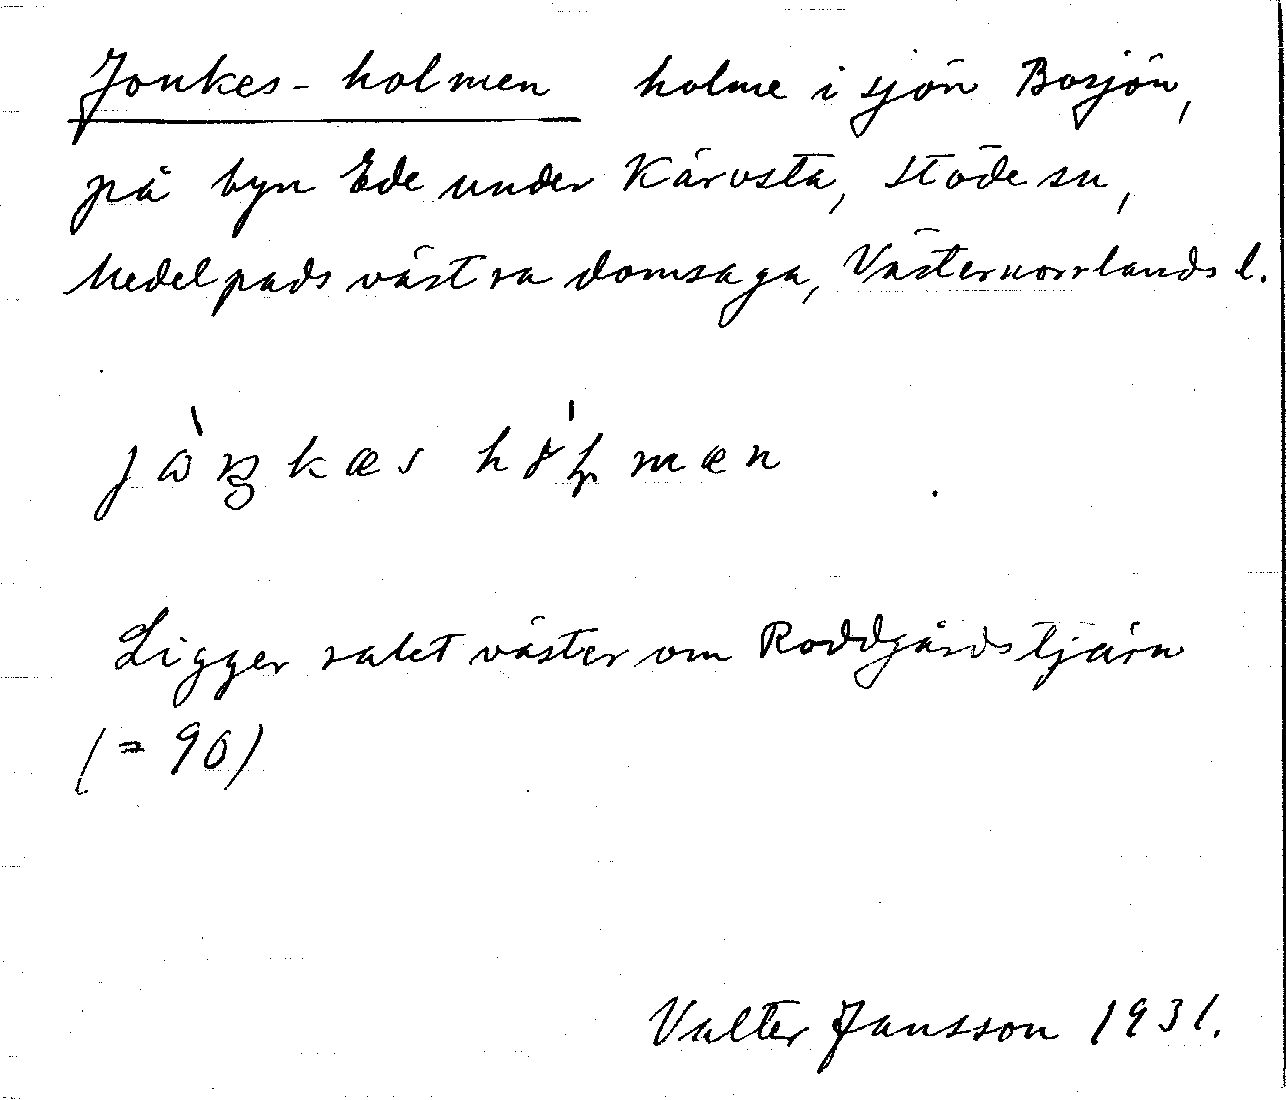 Jonkes-holmen holme i sjön Bosjön,
på byn Ede under Kärvsta, Stöde sn,
Medelpads västra domsaga, Västernorrlands l.
Ligger rakt väster om Roddgårdstjärn
(= 90)
Valter Jansson 1931.